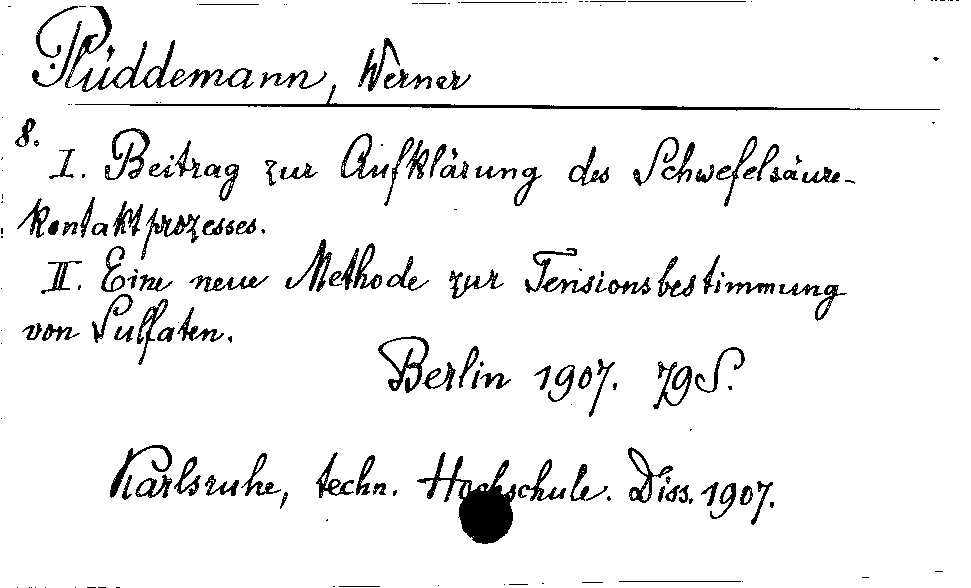 Plüddemann, Werner
8.
I. Beitrag zur Aufklärung des Schwefelsäure-
kontaktprozesses.
II. Eine neue Methode zur Tensionsbestimmung
von Sulfaten.
Berlin 1907. 79 S.
Karlsruhe, techn. Hochschule. Diss. 1907.